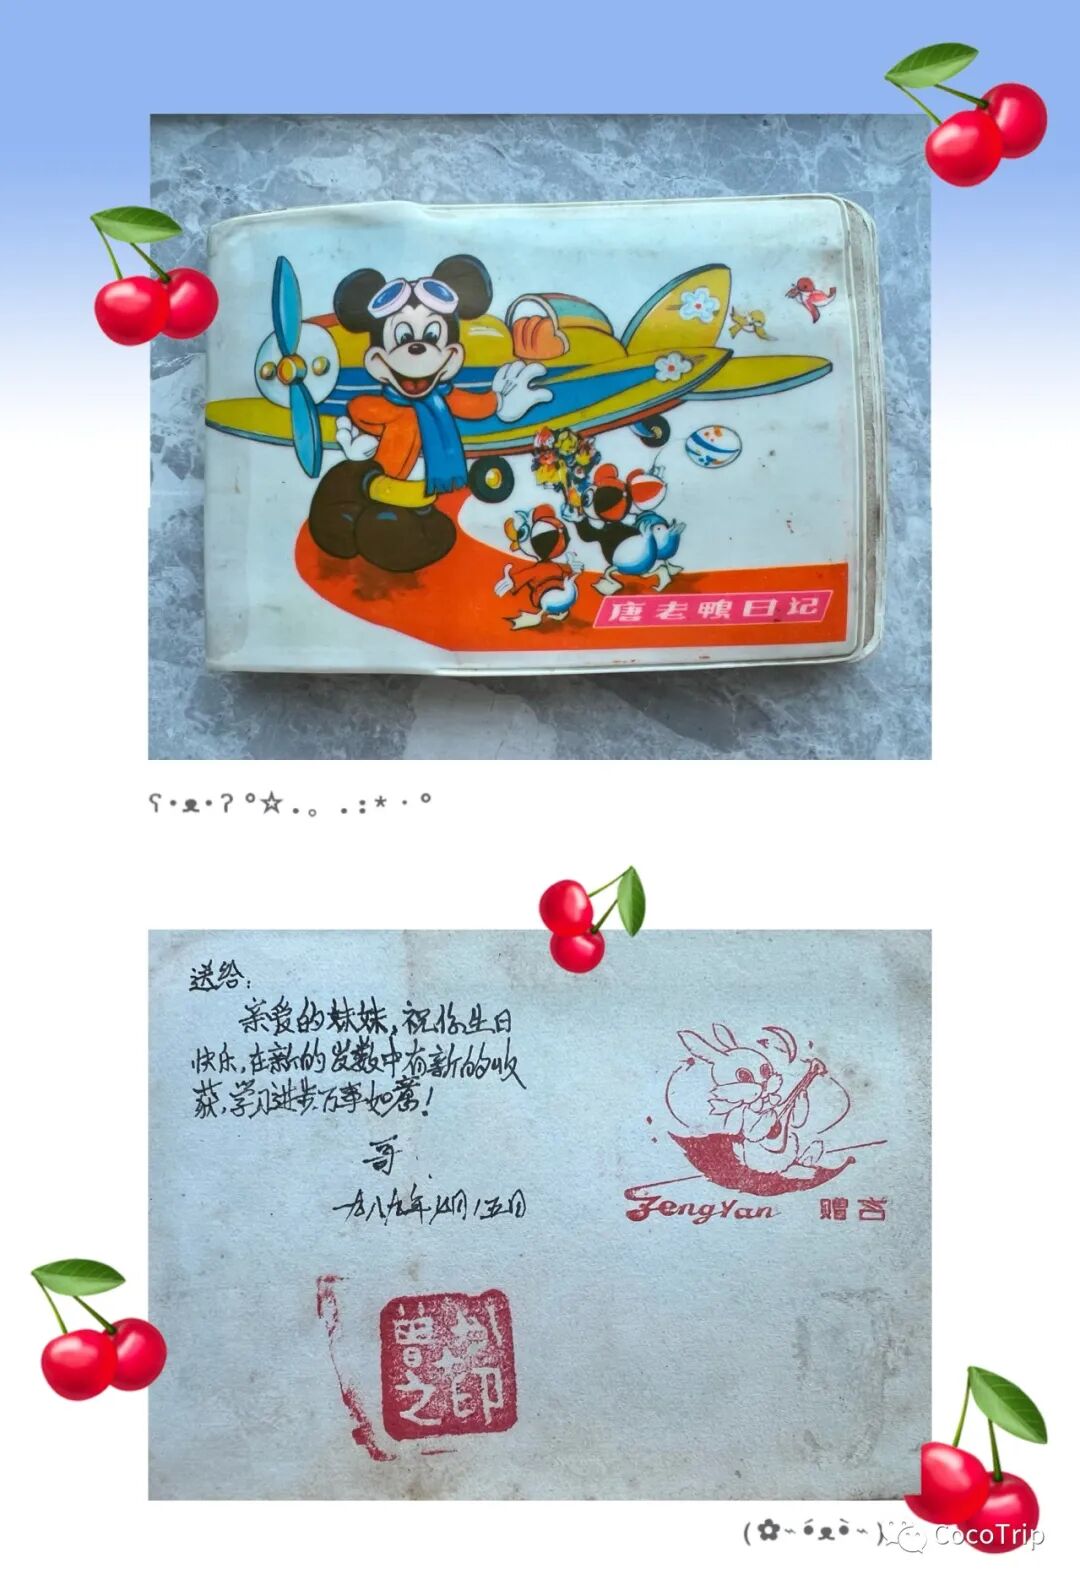 唐老鸭日记
ʕ•ᴥ•ʔ °☆.。.:*·°
送给:
亲爱的妹妹,祝你生日
快乐,在新的岁数中有新的收
获,学习进步万事如意!
哥
一九八九年
ZengYan 赠言
曾
之印
(✿~•́ᴥ•̀~)
CocoTrip